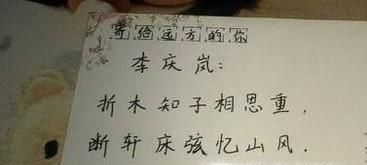 寄给远方的你
李庆岚:
折木知子相思重,
断轩床弦忆山风.